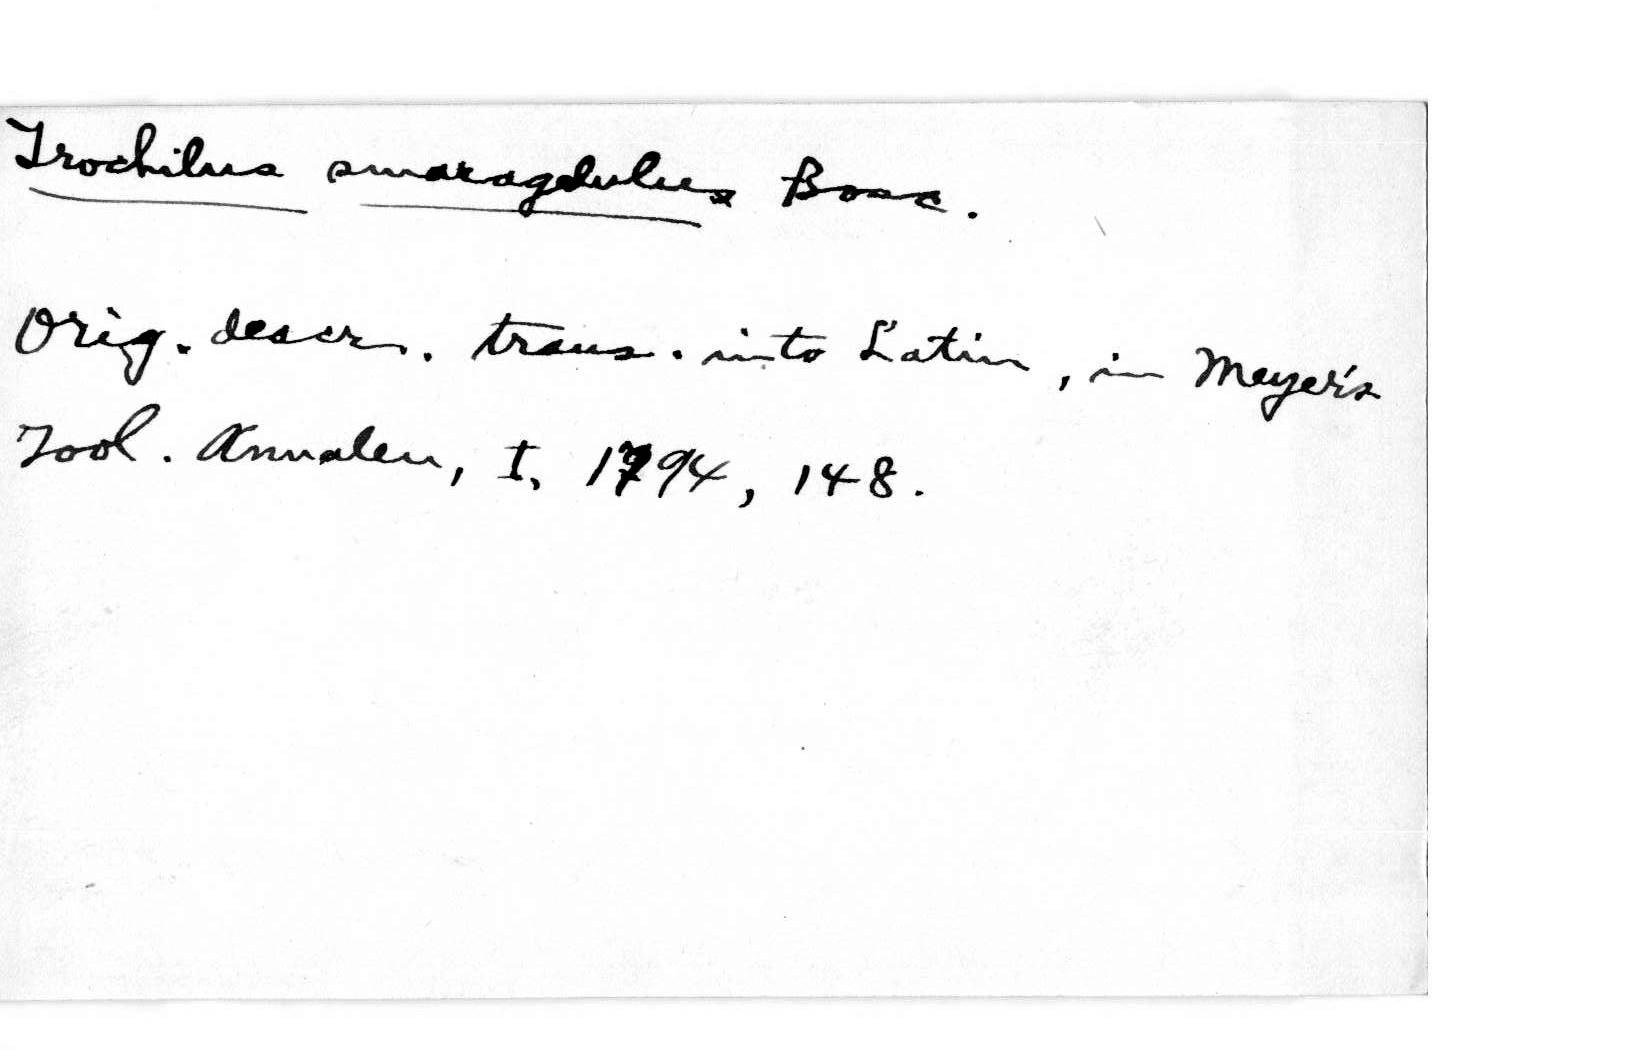 Trochilus smaragdulus Bosc.
Orig. descr. trans. into Latin, in Meyer's
Zool. Annalen, I, 1794, 148.